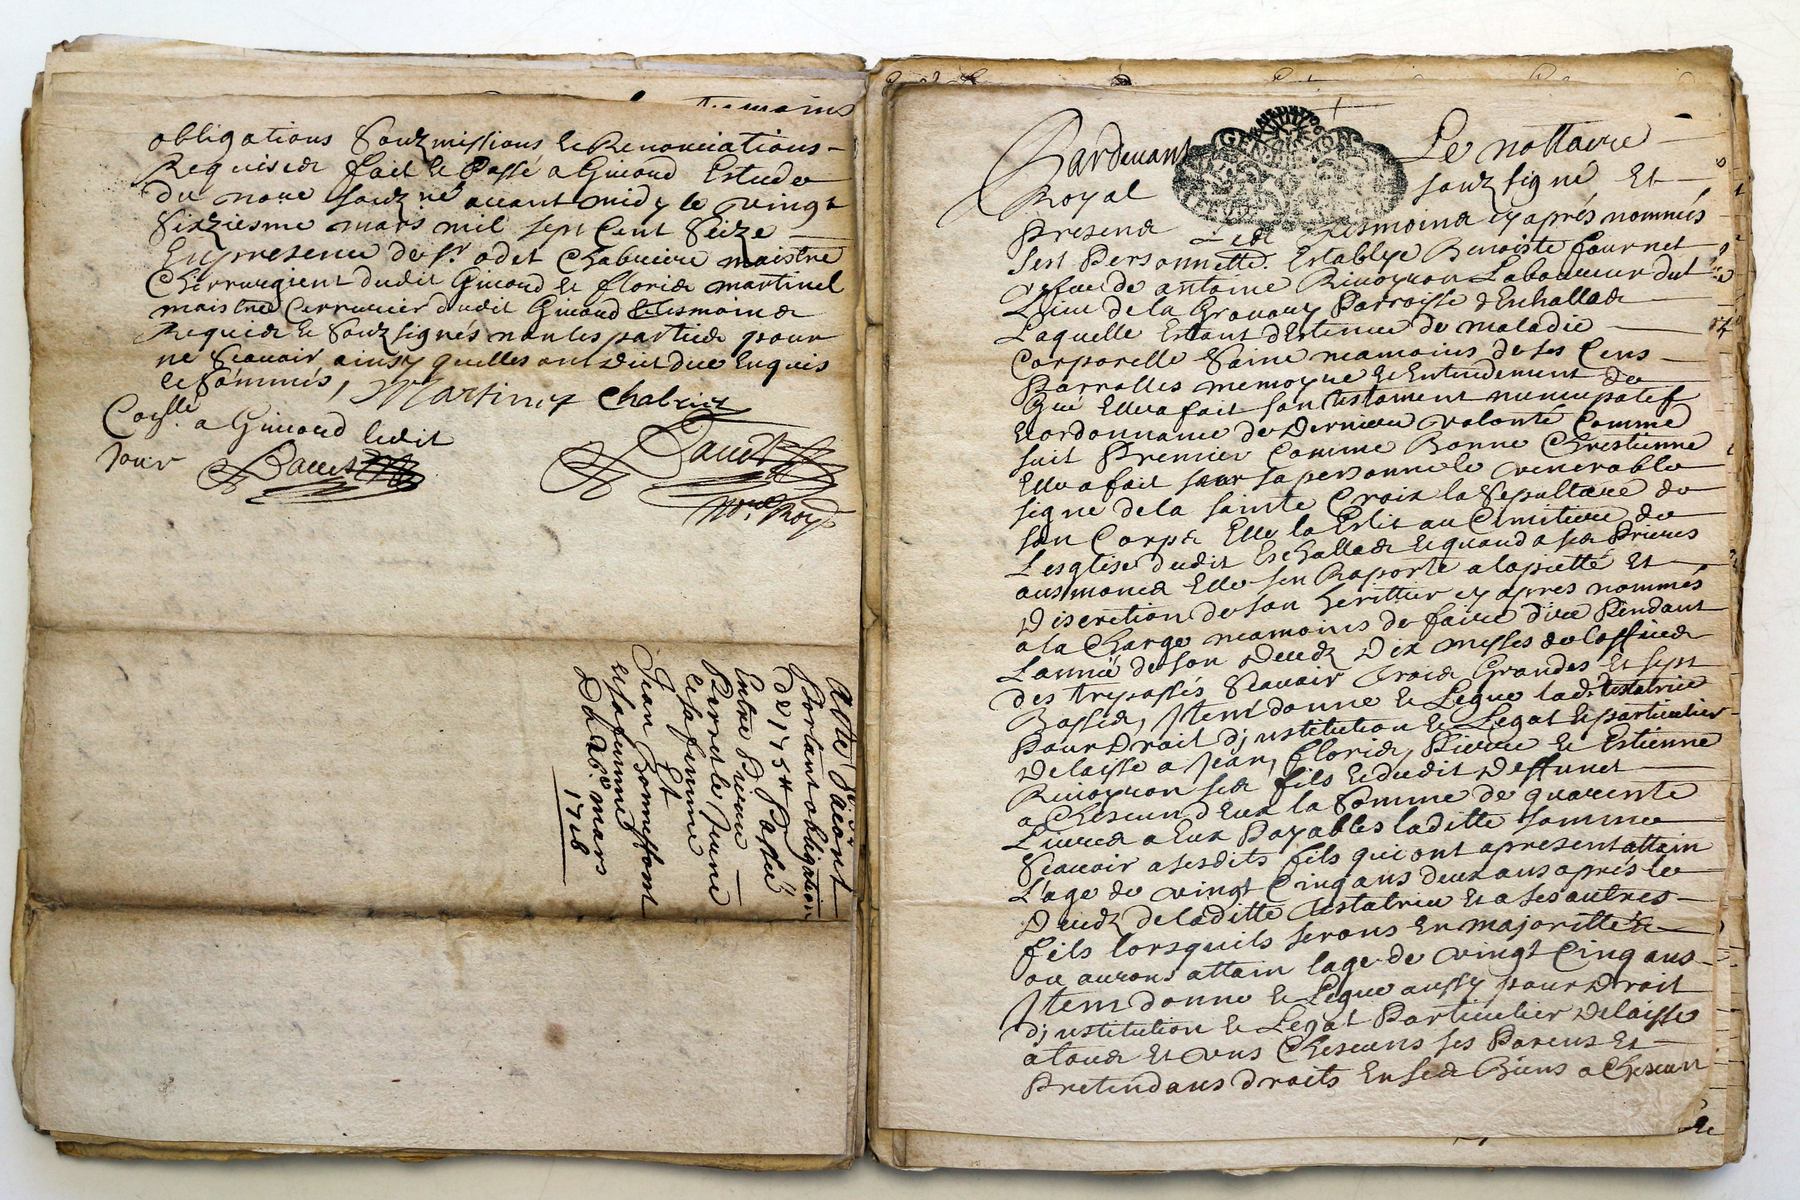 obligations Souzmissions & Renonciations
Requises fait & Passé a Giraud Estude
du no.re souz.né avant midy le vingt
Sixziesme mars mil sept Cent Seize
En presence de S.r odet Chabriere maistre
Chirrurgient dudit Giraud & florid martinel
maistre Cerrurier dudit Giraud tesmoins
Requis & Souz signés non les parties pour
ne Scavoir ainsy quelles ont dit de ce Enquis
& Sommés,
Martinel Chabriere
a Giraud ledit
Jour
no.re Roy.
Acte
Portant obligation
de 175 # Passé
Entre Pierre
Perret le Jeune
& sa femme
Et
Jean
& sa femme
Du 26.e mars
1716
Pardevant Le nottaire
Royal souz signé Et
Presens Les Tesmoins cy aprés nommés
Sest Personnellem. Establye Benoiste fournet
vefve de antoine Laboureur du
Lieu de la Parroisse d Eschallas
Laquelle Estant destenue de maladie
Corporelle Saine neamoins de ses Cens
Parrolles memoyre & Entendement de
Gré Ella fait son testament nuncupatif
& ordonnance de Derniere volonté Comme
suit Premier Comme Bonne Chrestienne
Ella fait sur sa personne le venerable
signe de la sainte Croix la Sepulture de
son Corps Elle la Eslit au Cimitiere de
Lesglise dudit Eschallas & quand a ses Prieres
ausmones Elle sen Raporte a la piette Et
Discretion de son heritier cy apres nommés
a la Charge neamoins de faire dire Pendant
Lannée de son Deceds Dix messes de Loffice
des trepassés Scavoir Trois Grandes Et sept
Basses, Item donne & Legue lad. testatrice
Pour Droit dinstitution & Legat & particulier
Delaisse a Jean, florid, Pierre & Estienne
ses fils & dudit Deffunct
a Chescun deux la Somme de quarente
Livres a Eux Payables laditte somme
Scavoir a sesdits fils qui ont a present attain
L'age de vingt Cinq ans deux ans aprés le
Deceds de laditte testatrice Et a ses autres
fils lorsquils serons En majoritté
ou aurons attain lage de vingt Cinq ans
Item donne & Legue aussy pour Droit
dinstitution & Legat Particulier Delaisse
a tous Et uns Chescuns ses Parens Et
Pretendans droits En ses Biens a Chescun